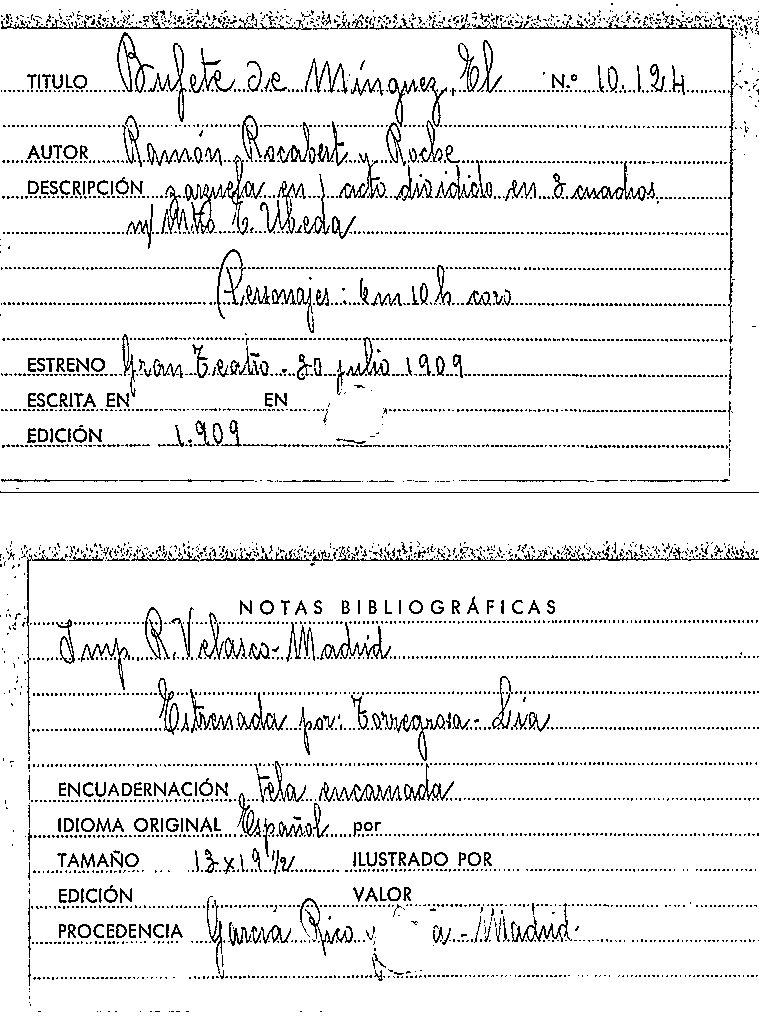 TITULO Bufete de Mínguez, El N.º 10.124
AUTOR Ramón Rocabert y Roche
DESCRIPCIÓN zarzuela en 1 acto dividido en 3 cuadros
m/ Mtro E. Ubeda
Personajes: 6 m 10 h coro
ESTRENO Gran Teatro - 30 julio 1909
ESCRITA EN EN
EDICIÓN 1.909
NOTAS BIBLIOGRÁFICAS
Imp R. Velasco - Madrid
Estrenada por: Torregrosa - Lía
ENCUADERNACIÓN tela encarnada
IDIOMA ORIGINAL Español por
TAMAÑO 13 x 19 1/2 ILUSTRADO POR
EDICIÓN VALOR
PROCEDENCIA García Rico y a - Madrid.